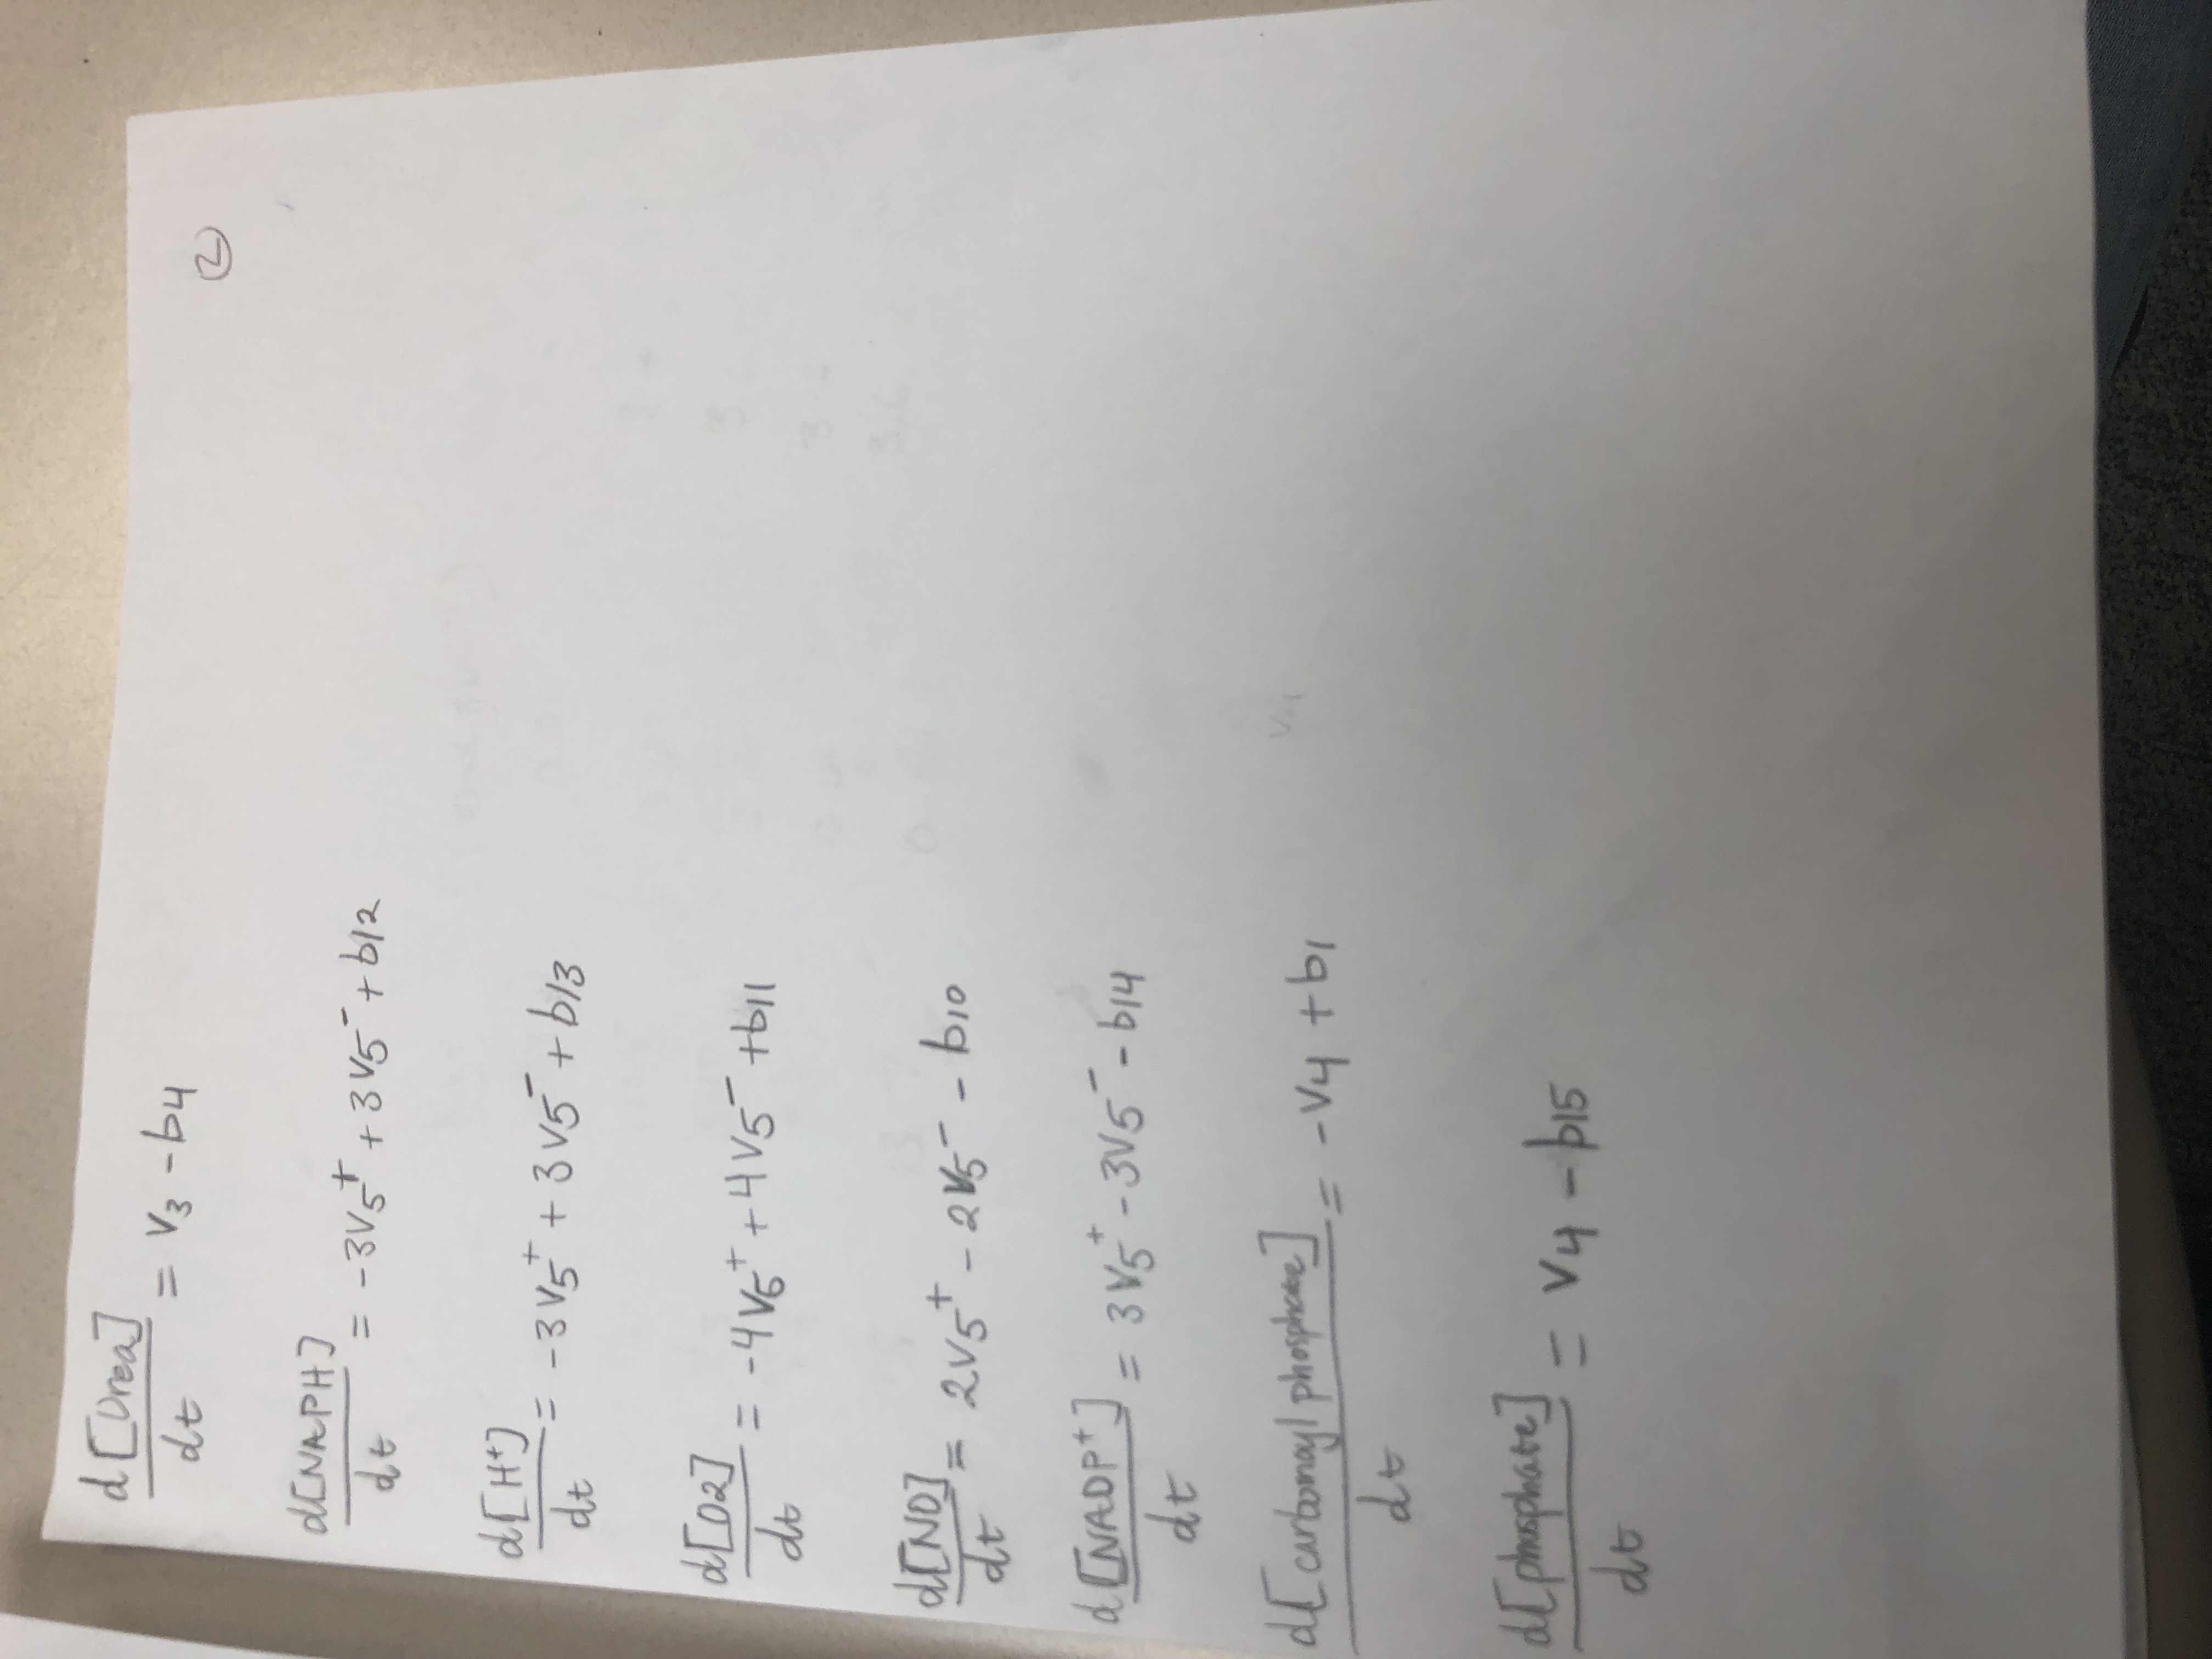 d[Urea]
dt = v3 - b4
②
d[NAPH]
dt = -3v5⁺ + 3v5⁻ + b12
d[H⁺]
dt = -3v5⁺ + 3v5⁻ + b13
d[O2]
dt = -4v5⁺ + 4v5⁻ + b11
d[NO]
dt = 2v5⁺ - 2v5⁻ - b10
d[NADP⁺]
dt = 3v5⁺ - 3v5⁻ - b14
d[carbomoyl phosphate]
dt = -v4 + b1
d[phosphate]
dt = v4 - b15